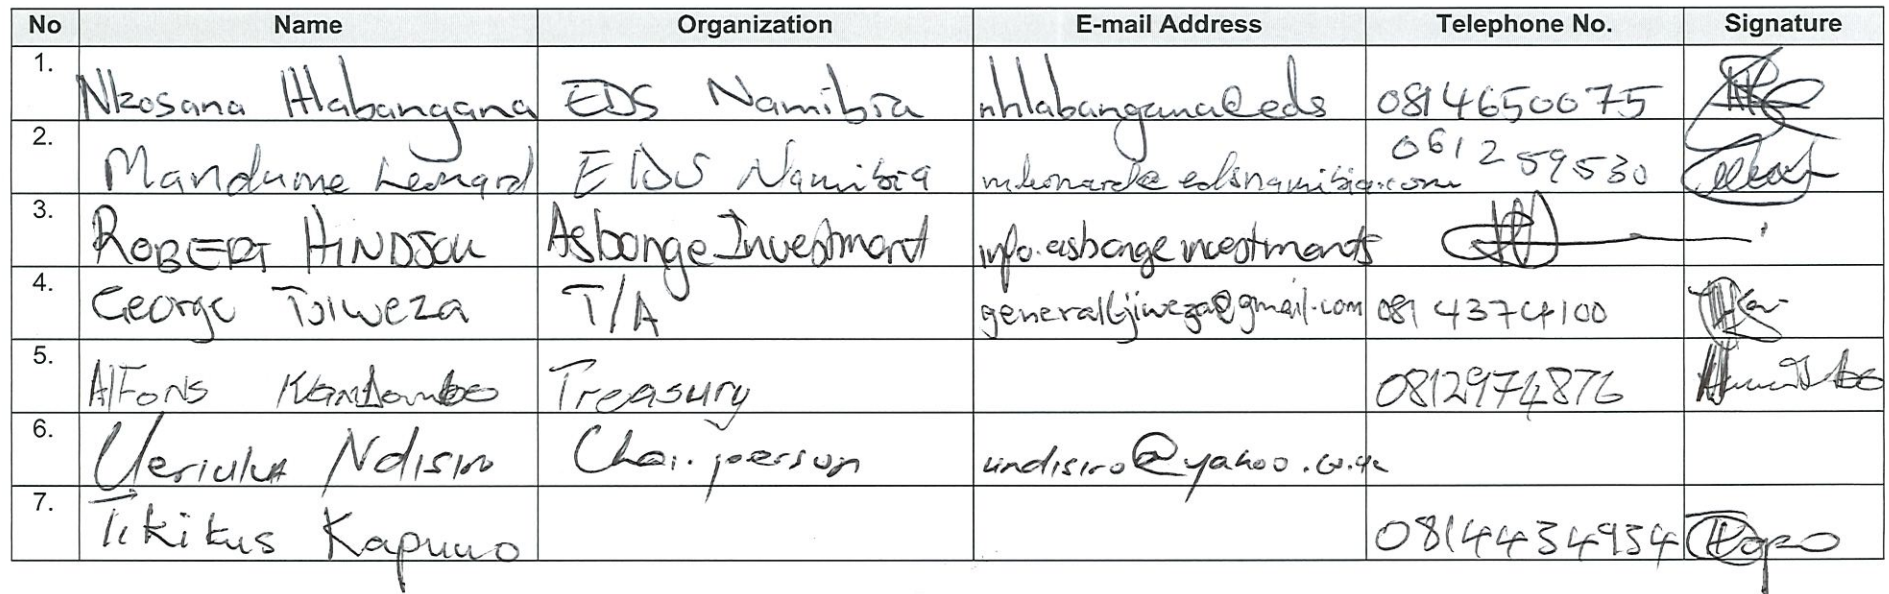 No Name Organization E-mail Address Telephone No. Signature
1. Nkosana Hlabangana EDS Namibia nhlabangana@eds 0814650075
2. Mandume Leonard EDS Namibia mleonard@edsnamibia.com 061259530
3. ROBERT HINDJOU Asbonge Investment info.asbonge investments
4. George Tjiweza T/A generaltjiweza@gmail.com 0814374100
5. Alfons Treasury 0812974876
6. Chairperson undisiro@yahoo.
7. Tikitus Kapuuo 0814434934